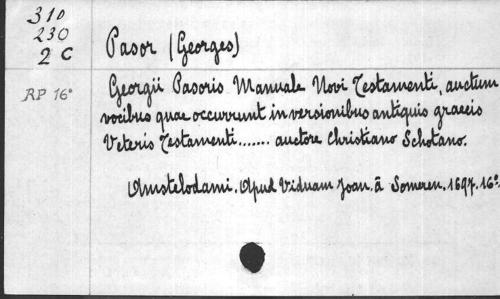 310
230
2 C
Pasor (Georges)
RP 16°
Georgii Pasoris Manuale Novi Testamenti, auctum
vocibus quae occurrunt in versionibus antiquis graecis
Veteris Testamenti....... auctore Christiano Schotano.
Amstelodami. Apud Viduam Joan. à Someren. 1697. 16°.